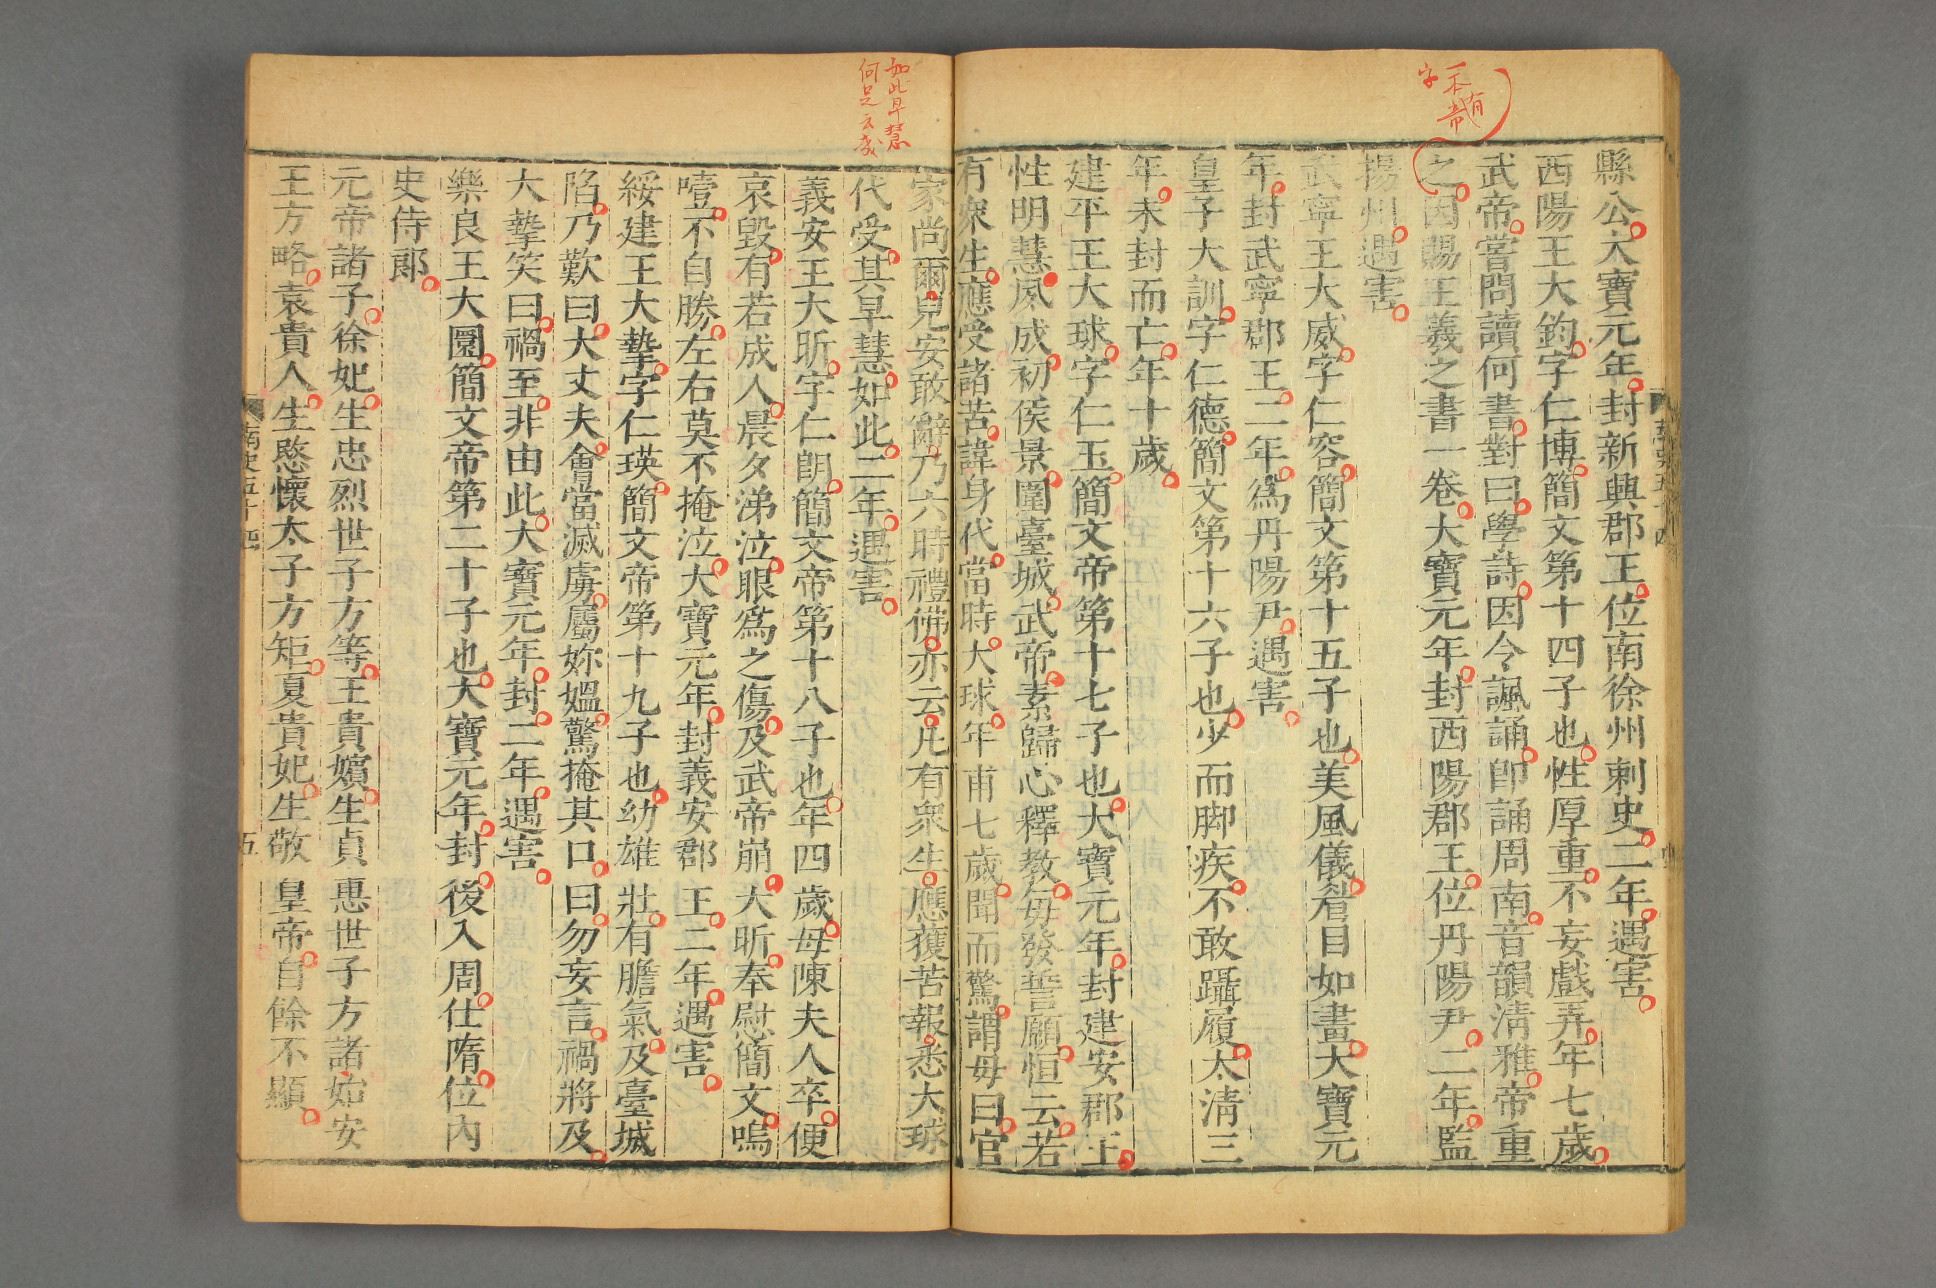 一本有
帝
字
縣公大寶元年封新興郡王位南徐州刺史二年遇害
西陽王大鈞字仁博簡文第十四子也性厚重不妄戲弄年七歲
武帝嘗問讀何書對曰學詩因令諷誦即誦周南音韻清雅帝重
之因賜王羲之書一卷大寶元年封西陽郡王位丹陽尹二年監
揚州遇害
武寧王大威字仁容簡文第十五子也美風儀眉目如畫大寶元
年封武寧郡王二年為丹陽尹遇害
皇子大訓字仁德簡文第十六子也少而脚疾不敢躡履太清三
年未封而亡年十歲
建平王大球字仁玉簡文帝第十七子也大寶元年封建安郡王
性明慧夙成初侯景圍臺城武帝素歸心釋教每發誓願恒云若
有衆生應受諸苦諱身代當時大球年甫七歲聞而驚謂母曰官
如此早慧
何足云哉
家尚爾兒安敢辭乃六時禮佛亦云凡有衆生應獲苦報悉大球
代受其早慧如此二年遇害
義安王大昕字仁朗簡文帝第十八子也年四歲母陳夫人卒便
哀毀有若成人晨夕涕泣眼為之傷及武帝崩大昕奉慰簡文嗚
噎不自勝左右莫不掩泣大寶元年封義安郡王二年遇害
綏建王大摯字仁瑛簡文帝第十九子也幼雄壯有膽氣及臺城
陷乃歎曰大丈夫會當滅虜屬妳媼驚掩其口曰勿妄言禍將及
大摯笑曰禍至非由此大寶元年封二年遇害
樂良王大圜簡文帝第二十子也大寶元年封後入周仕隋位內
史侍郎
元帝諸子徐妃生忠烈世子方等王貴嬪生貞惠世子方諸始安
王方略袁貴人生愍懷太子方矩夏貴妃生敬皇帝自餘不顯
南史五十四
五